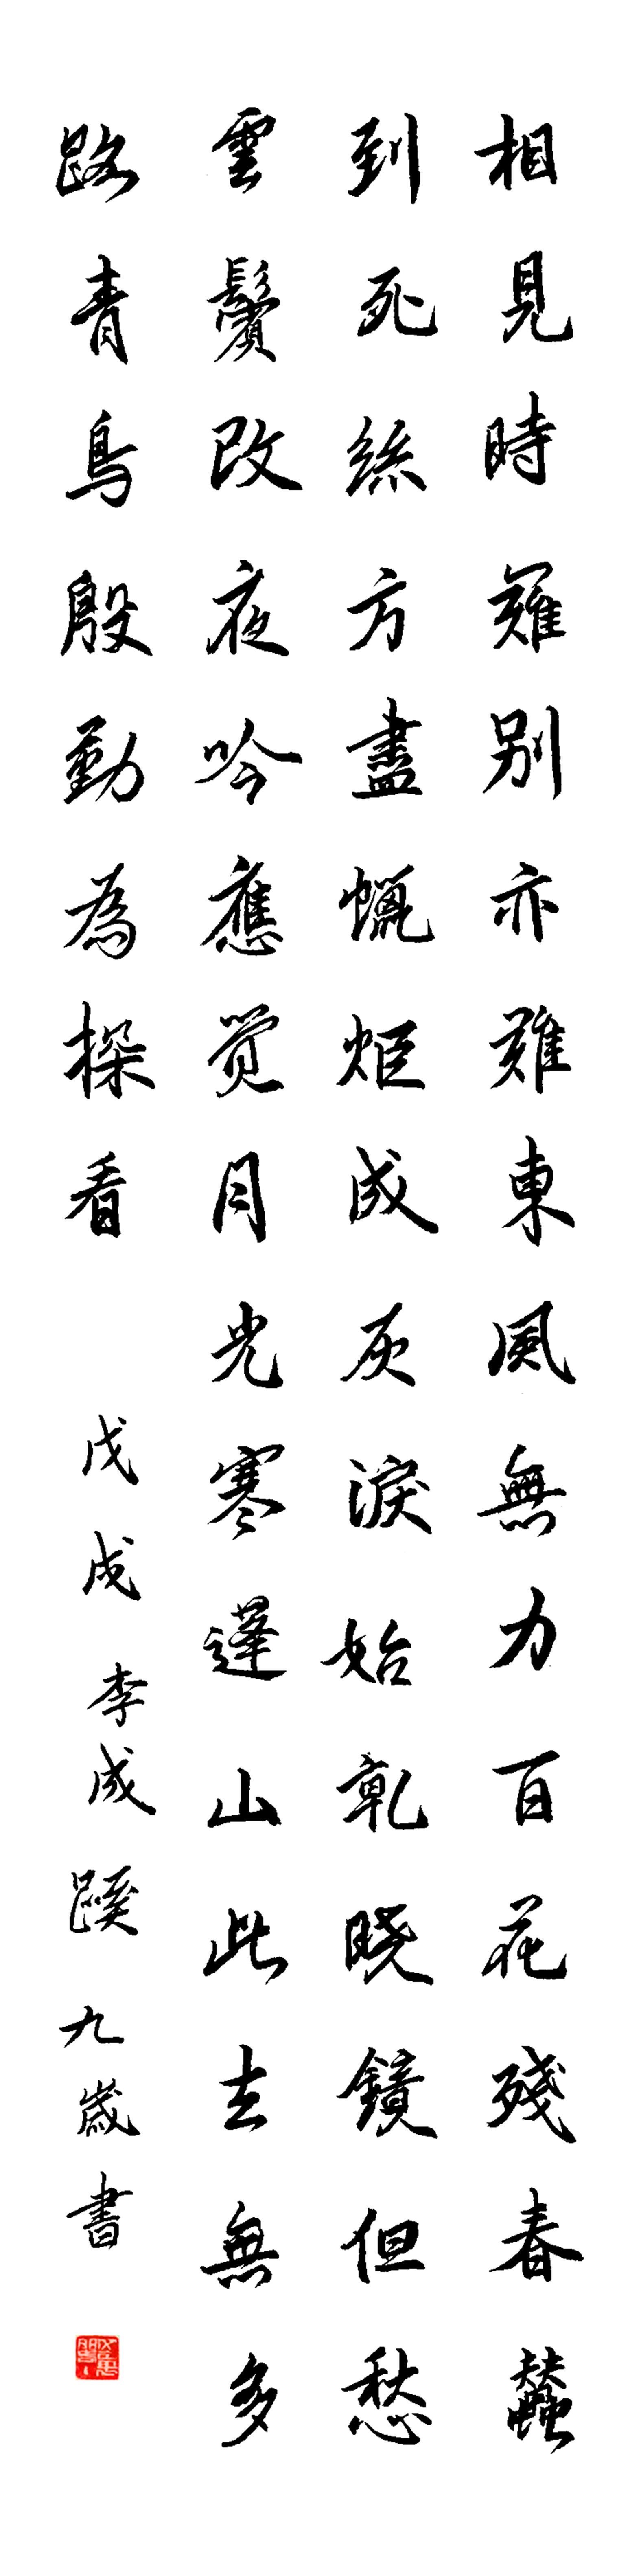 相見時難別亦難東風無力百花殘春蠶
到死絲方盡蠟炬成灰淚始乾曉鏡但愁
雲鬢改夜吟應觉月光寒蓬山此去無多
路青鳥殷勤為探看
戊戌李成蹊九歲書